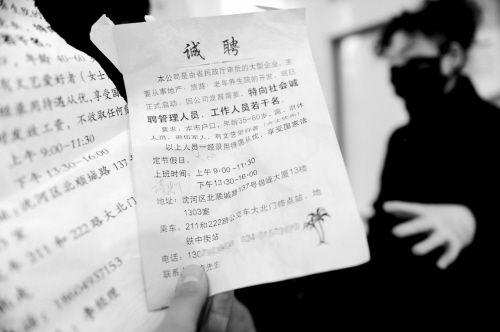 诚聘
本公司是由省民政厅审批的大型企业，主
要从事地产、旅游、老年养生院的开发，现已
正式启动，因公司发展需要，特向社会诚
聘管理人员、工作人员若干名。
要求：本市户口，年龄35-60岁，
以上人员一经录用待遇从优，享受国家法
定节假日。
上班时间：上午9:00-11:30
下午13:30-16:00
地址：沈河区北顺城路137号
大厦13楼
1303室
乘车：211和222路公交车大北门终点站、地
铁中街站
电话：130
联系
先生
年龄 40-60
有文艺爱好者（女士
经录用待遇从优，享受国
时发放工资，不收取任何
上午9:00-11:30
下午13:30-16:00
沈河区北顺城路137
211和222路大北门
18604937153
李经理